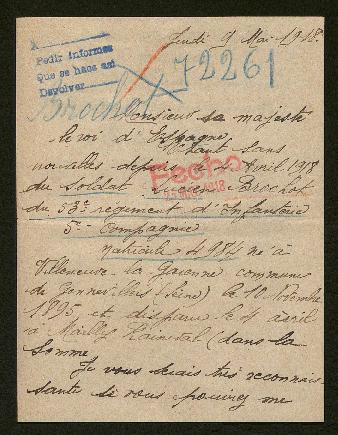 Jeudi 9 Mai 1918
A
Pedir informes
Que se haga así
Devolver
72261
Brochot
Monsieur sa majesté
le roi d'Espagne
Etant sans
nouvelles depuis Avril 1918
Fecho
1918
du soldat Lucien Brochot
du 53e régiment d'Infanterie
5e Compagnie
matricule 4984 né à
Villeneuve la Garenne commune
de Gennevilliers (Seine) le 10
1895 et disparu le 4 avril
à Mailly Raineval (dans la
Somme
Je vous serais très reconnais-
sante si vous pouviez me